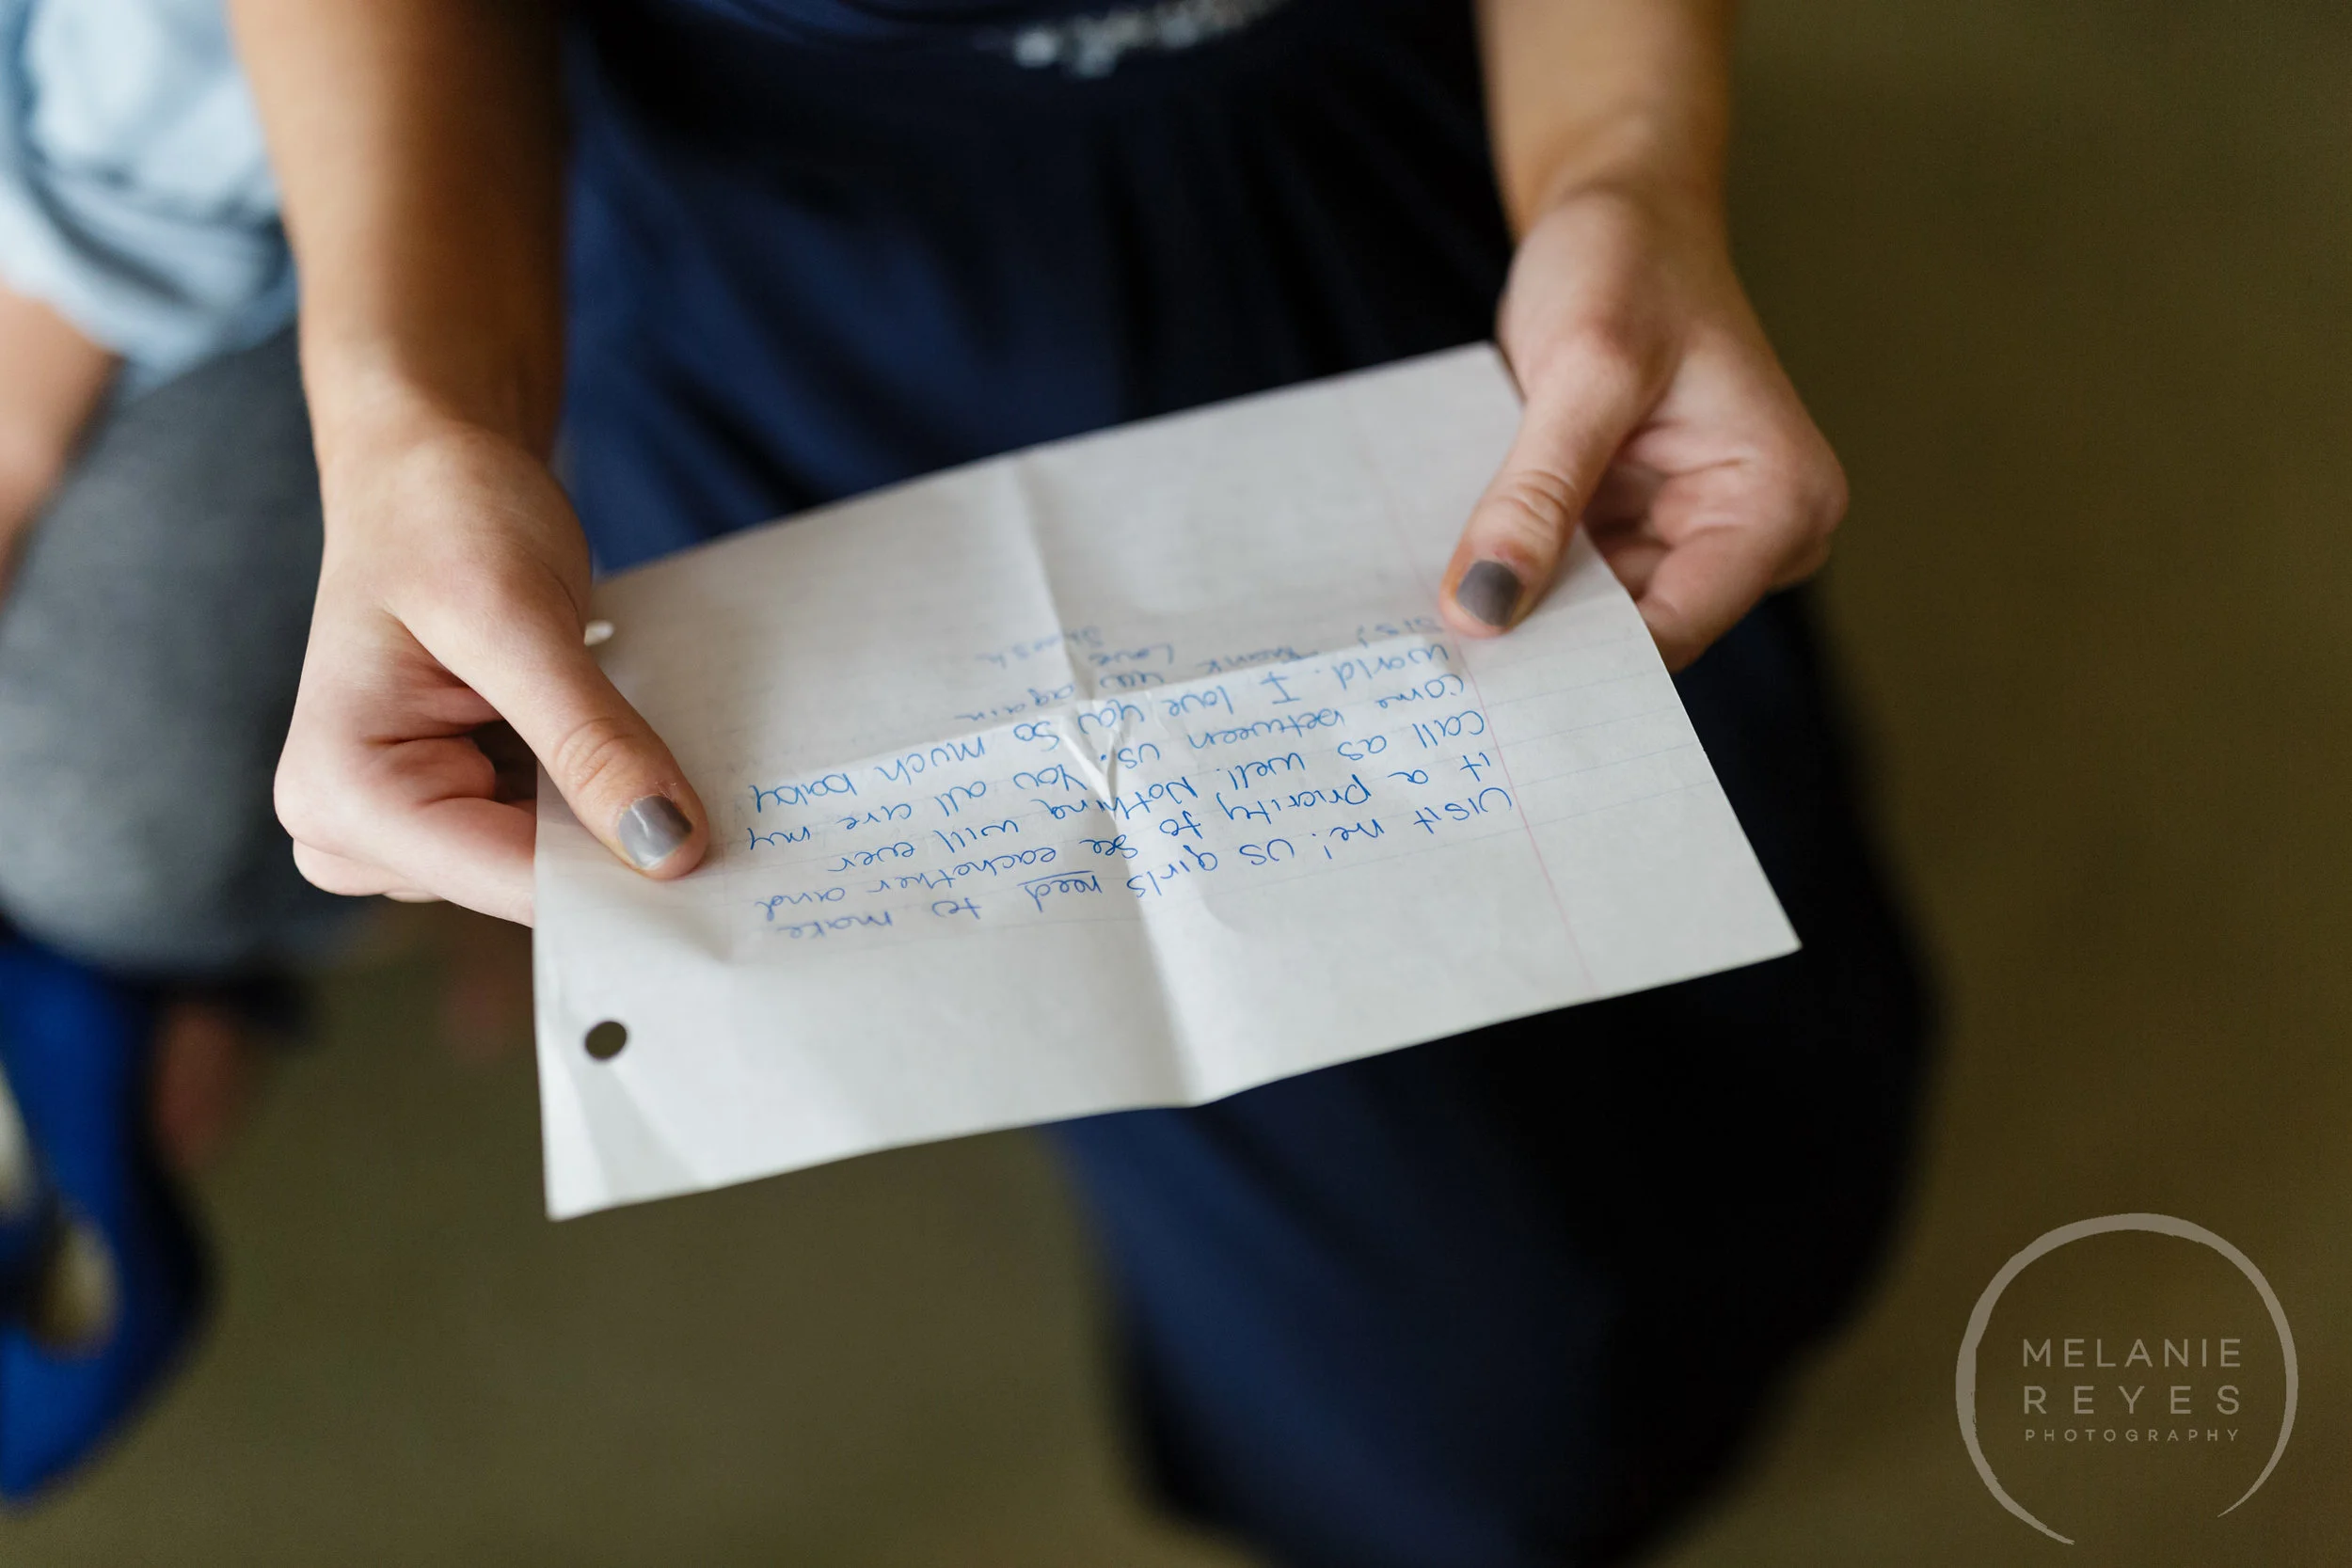 visit me! US girls need to make
it a priority to see eachother and
call as well. Nothing will ever
come between us. You all are my
world. I love you so much baby
sis! Thank you again
Love
MELANIE
REYES
PHOTOGRAPHY